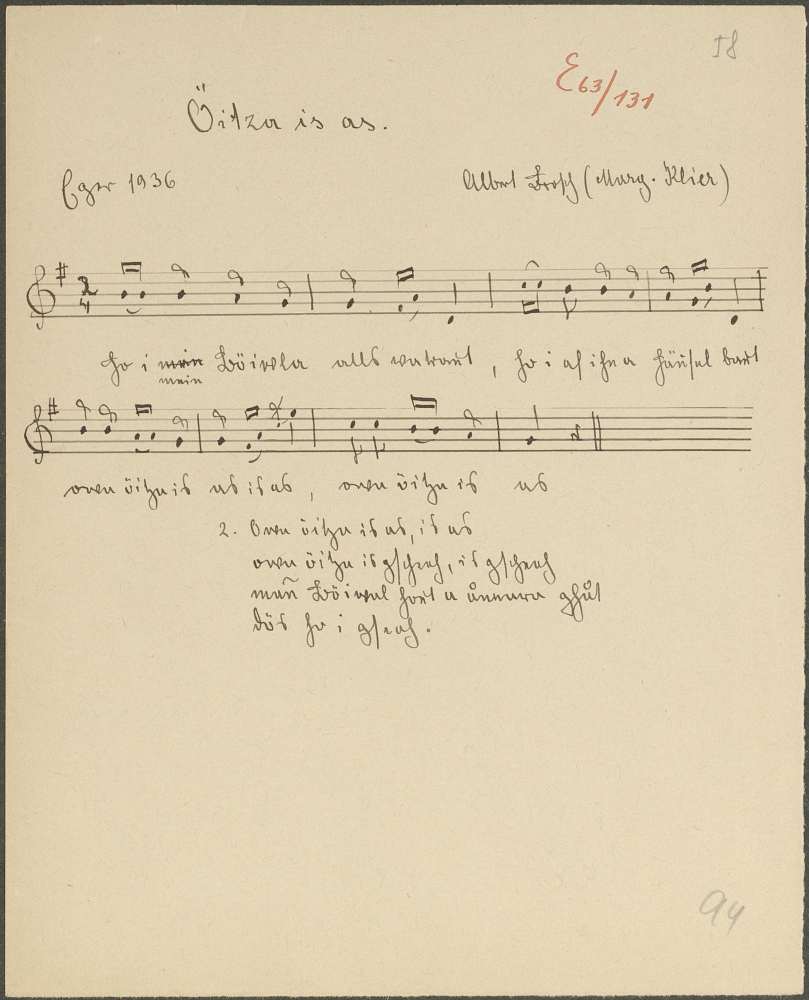 58
E 63/131
Öitza is as.
Eger 1936
Albert Brosch (Marg. Klier)
2/4
ho i mein Böiwla alls vatraut, ho i af ihn a Häusel baut
mein
owa öitza is as is as, owa öitza is as
2. Owa öitza is as, is as
owa öitza is gscheah, is gscheah
mañ Böiwal haut a ånnara ghåt
dös ho i gseah.
94